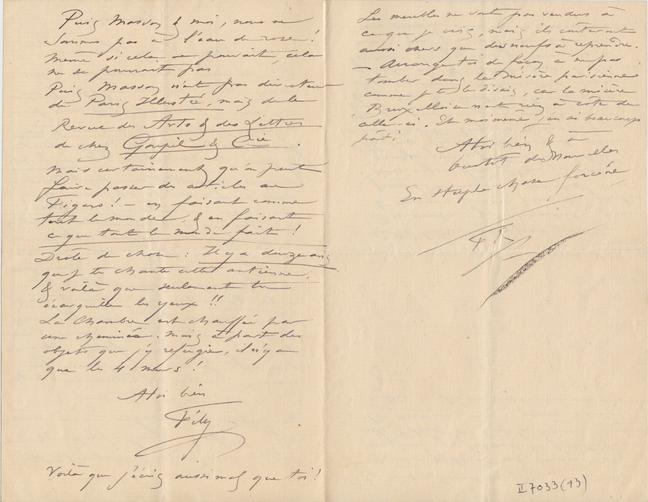 Puis Masson & moi, nous ne
sommes pas à l'eau de rose!
Meme si cela se pouvait, cela
ne se pourrait pas
Puis Masson n'est pas directeur
de Paris Illustré, mais de la
Revue des Arts & des Lettres
de chez Goupil & Cie.
Mais certainement qu'on peut
faire passer des articles au
Figaro! — en faisant comme
tout le monde, & en faisant
ce que tout le monde fait!
Drole de chose: Il y a douze ans
que je te chante cette antienne,
& voilà que seulement tu
écarquilles les yeux!!
La chambre est chauffée par
une cheminée. Mais à part des
objets que j'y refugie, il n'y a
que les 4 murs!
A toi bien
Fély
Voilà que j'écris aussi mal que toi!
Les meubles ne sont pas vendus à
ce que je crois, mais ils couteront
aussi chers que des neufs à reprendre.
— Arrangetoi de façon à ne pas
tomber dans la misère parisienne
comme je te le disais, car la misère
Bruxelloise n'est rien à côté de
celle-ci. Et moi meme j'en ai beaucoup
pati.
A toi bien & à
bientot de nouvelles
En
II 7033 (13)